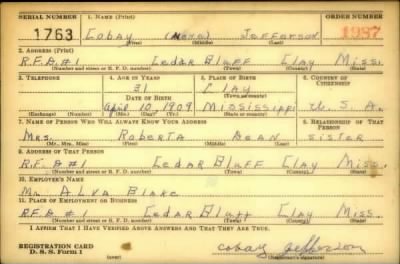 SERIAL NUMBER 1. NAME (Print) ORDER NUMBER
1763 Cobay (None) Jefferson 1987
(First) (Middle) (Last)
2. ADDRESS (Print)
R.F.D #1 Cedar Bluff Clay Miss.
(Number and street or R. F. D. number) (Town) (County) (State)
3. TELEPHONE 4. AGE IN YEARS 5. PLACE OF BIRTH 6. COUNTRY OF CITIZENSHIP
31 Clay
DATE OF BIRTH (Town or county)
April 10, 1909 Mississippi U. S. A.
(Exchange) (Number) (Mo.) (Day) (Yr.) (State or country)
7. NAME OF PERSON WHO WILL ALWAYS KNOW YOUR ADDRESS 8. RELATIONSHIP OF THAT PERSON
Mrs. Roberta Dean Sister
(Mr., Mrs., Miss) (First) (Middle) (Last)
9. ADDRESS OF THAT PERSON
R.F.D #1 Cedar Bluff Clay Miss.
(Number and street or R. F. D. number) (Town) (County) (State)
10. EMPLOYER'S NAME
Mr. Alva Blake
11. PLACE OF EMPLOYMENT OR BUSINESS
R.F.D #1 Cedar Bluff Clay Miss.
(Number and street or R. F. D. number) (Town) (County) (State)
I AFFIRM THAT I HAVE VERIFIED ABOVE ANSWERS AND THAT THEY ARE TRUE.
REGISTRATION CARD
D. S. S. Form 1 (over) Cobay Jefferson
(Registrant's signature)